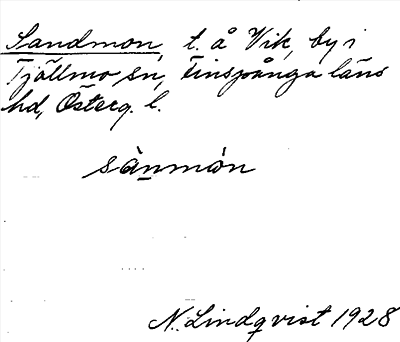 Sandmon, t. å Vik, by i
Tjällmo sn, Finspånga läns
hd, Österg. l.
sànmòn
N. Lindqvist 1928